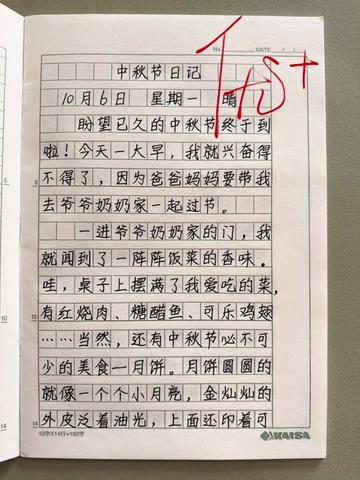 No.
DATE / /
中秋节日记
10月6日 星期一 晴
盼望已久的中秋节终于到
啦！今天一大早，我就兴奋得
不得了，因为爸爸妈妈要带我
去爷爷奶奶家一起过节。
一进爷爷奶奶家的门，我
就闻到了一阵阵饭菜的香味。
哇，桌子上摆满了我爱吃的菜，
有红烧肉、糖醋鱼、可乐鸡翅
……当然，还有中秋节必不可
少的美食一月饼。月饼圆圆的
就像一个个小月亮，金灿灿的
外皮泛着油光，上面还印着可
5
10
14
13字X14行=182字
KAISA